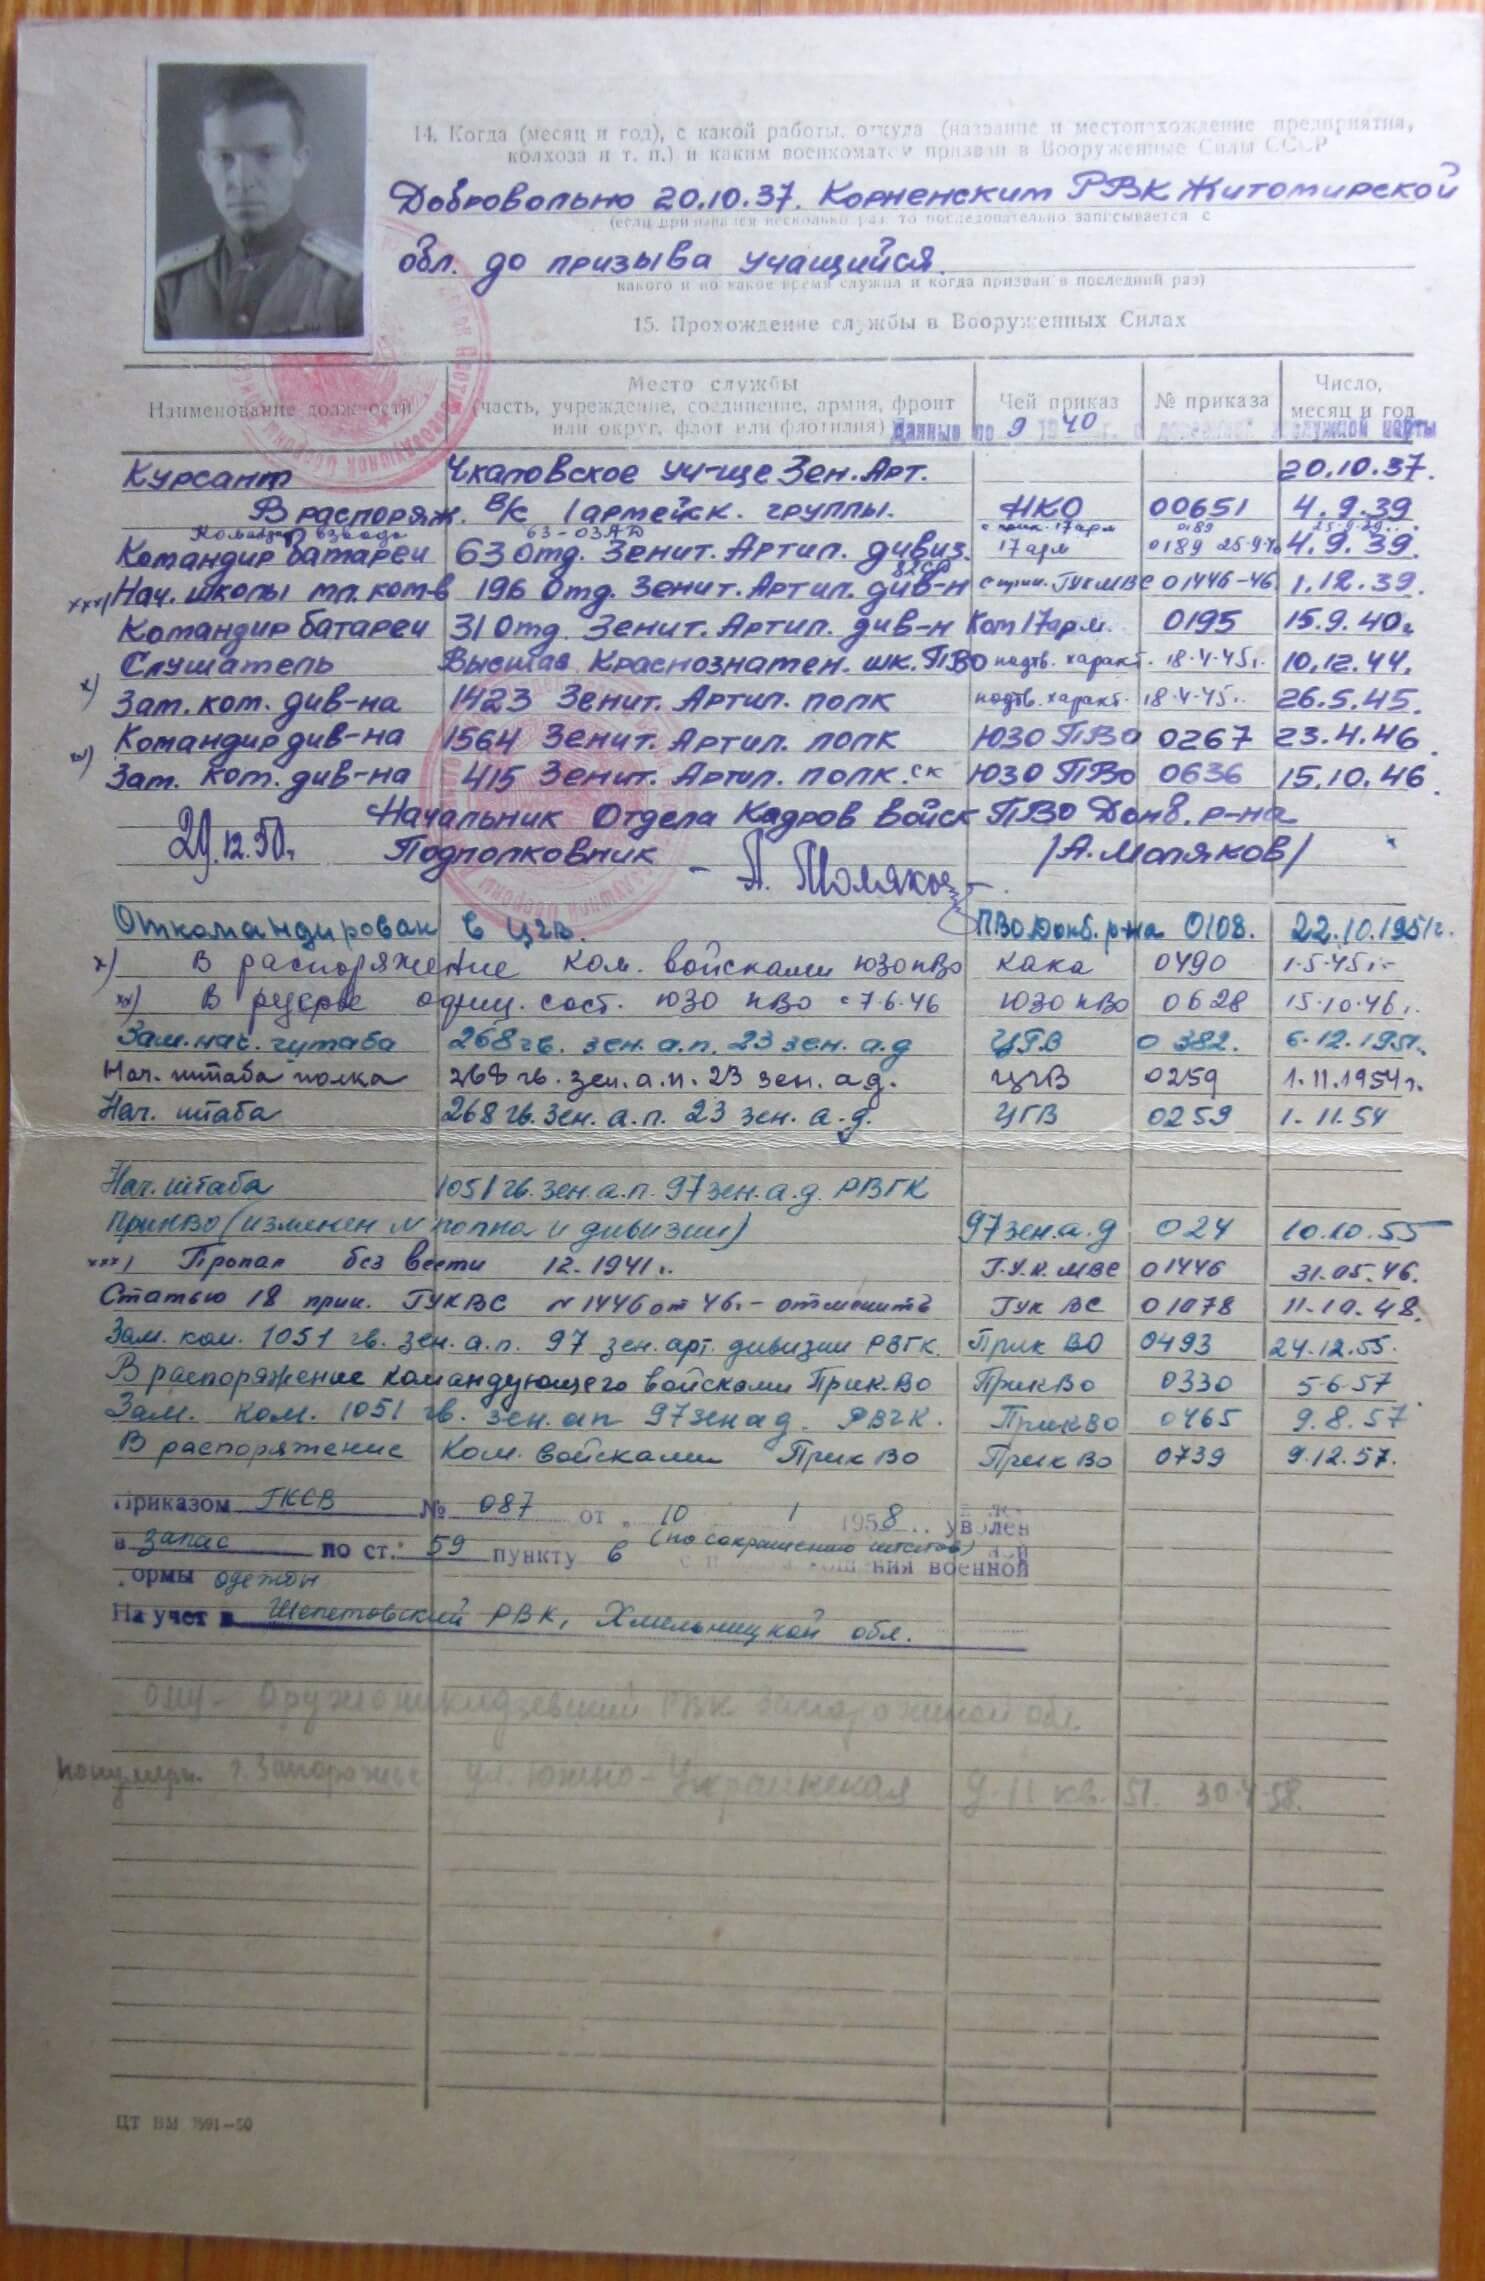 14. Когда (месяц и год), с какой работы, откуда (название и местонахождение предприятия,
колхоза и т. п.) и каким военкоматом призван в Вооруженные Силы СССР
Добровольно 20.10.37. Корненским РВК Житомирской
(если призывался несколько раз, то последовательно записывается с
обл. до призыва учащийся.
какого и по какое время служил и когда призван в последний раз)
15. Прохождение службы в Вооруженных Силах
Наименование должности | Место службы (часть, учреждение, соединение, армия, фронт или округ, флот или флотилия) | Чей приказ | № приказа | Число, месяц и год
Данные по 9 1940 г. с послужной карты
Курсант Чкаловское уч-ще Зен. Арт. 20.10.37.
В распоряж. В/с 1 армейск. группы. НКО 00651 4.9.39
Командир взвода 63-ОЗАД с прик. 17 арм 0189 25.9.39
Командир батареи 63 Отд. Зенит. Артил. дивиз. 17 арм 0189 25.9.40 4.9.39.
82СД
ххх) Нач. школы мл. ком-в 196 Отд. Зенит. Артил. див-н с прик. ГУКМВС 01446-46 1.12.39.
Командир батареи 31 Отд. Зенит. Артил. див-н Ком 17 арм. 0195 15.9.40г.
Слушатель Высшая Краснознамен. шк. ПВО подтв. характ. 18.4.45г. 10.12.44.
х) Зам. ком. див-на 1423 Зенит. Артил. полк подтв. характ. 18.4.45г. 26.5.45.
Командир див-на 1564 Зенит. Артил. полк ЮЗО ПВО 0267 23.4.46.
хх) Зам. ком. див-на 415 Зенит. Артил. полк ск ЮЗО ПВО 0636 15.10.46.
Начальник Отдела Кадров войск ПВО Донб. р-на
29.12.50г. Подполковник /А. Моляков/
Откомандирован в ЦГВ. ПВО Донб. р-на 0108. 22.10.1951г.
х) В распоряжение ком. войсками ЮЗОПВО кака 0490 1.5.45г.
хх) В резерве офиц. сост. ЮЗО ПВО с 7.6.46 ЮЗО ПВО 0628 15.10.46г.
Зам. нач. штаба 268 гв. зен. а.п. 23 зен. а.д ЦГВ 0382. 6.12.1951г.
Нач. штаба полка 268 гв. зен. а.п. 23 зен. а.д. ЦГВ 0259 1.11.1954г.
Нач. штаба 268 гв. зен. а.п. 23 зен. а.д. ЦГВ 0259 1.11.54
Нач. штаба 1051 гв. зен. а.п. 97 зен. а.д. РВГК
ПрикВО (изменен № полка и дивизии) 97 зен. а.д 024 10.10.55
ххх) Пропал без вести 12.1941г. Г.У.К. МВС 01446 31.05.46.
Статью 18 прик. ГУКВС №1446 от 46г. - отменить ГУК ВС 01078 11.10.48.
Зам. ком. 1051 гв. зен. а.п. 97 зен. арт. дивизии РВГК. Прик ВО 0493 24.12.55.
В распоряжение командующего войсками Прик.ВО ПрикВО 0330 5.6.57
Зам. ком. 1051 гв. зен. ап 97 зен ад. РВГК. ПрикВО 0465 9.8.57
В распоряжение Ком. войсками Прик ВО Прик ВО 0739 9.12.57.
Приказом ГКСВ № 087 от 10 1 1958 уволен
в запас по ст. 59 пункту в (по сокращению штатов) ношения военной
формы одежды
На учет в Шепетовский РВК, Хмельницкой обл.
Орджоникидзевский РВК Запорожской обл.
г. Запорожье ул. Южно-Украинская д. 11 кв. 51. 30.4.58.
ЦТ ВМ 7591-50